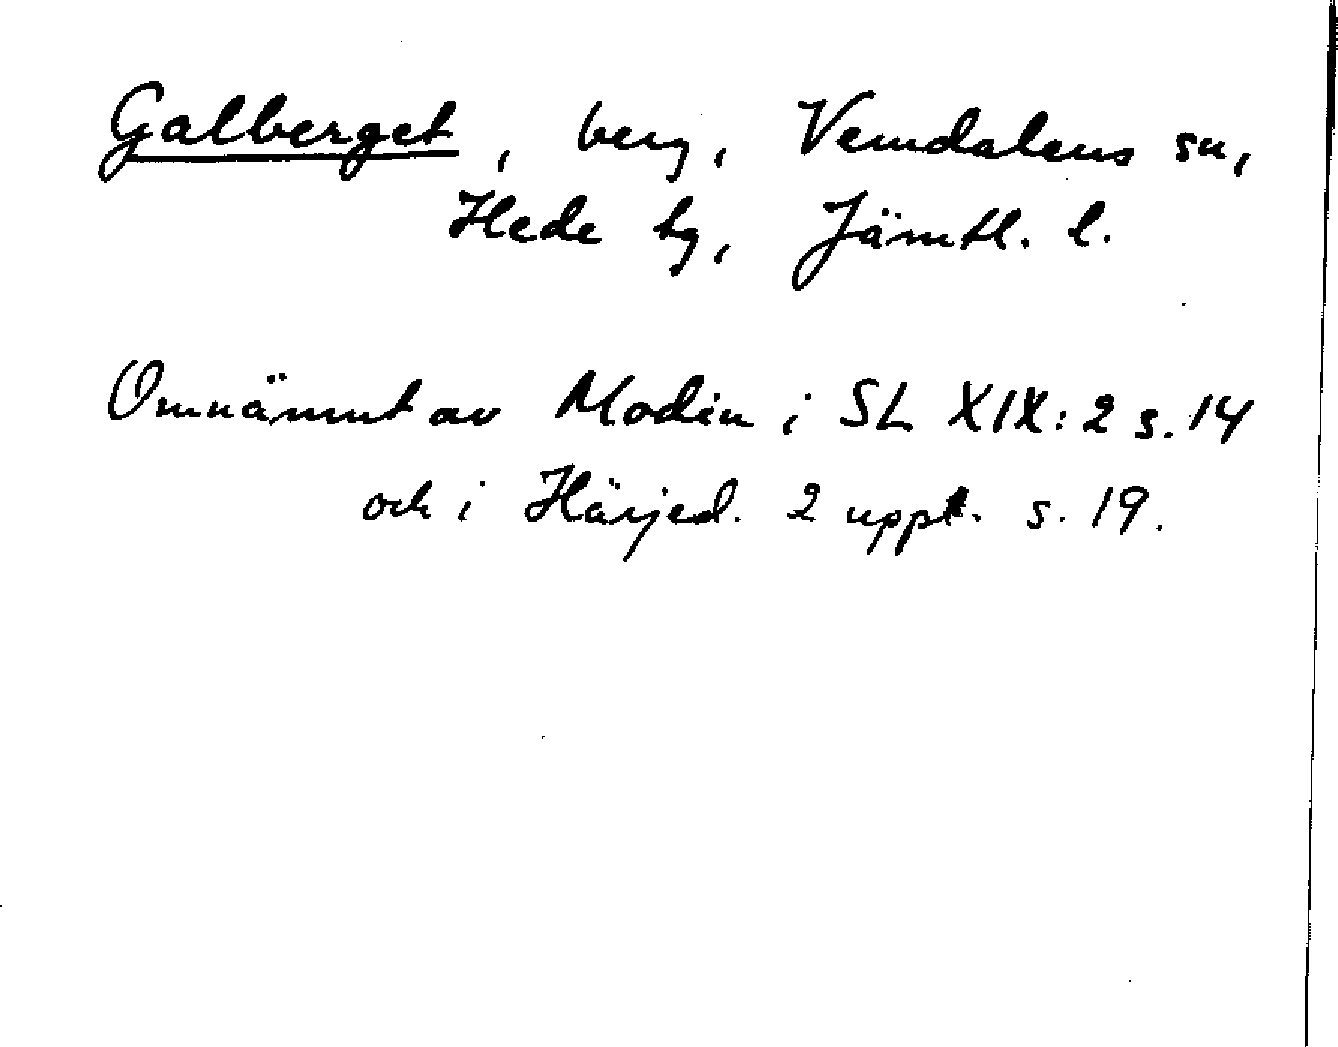 Galberget, berg, Vemdalens sn,
Hede tg, Jämtl. l.
Omnämnt av Modin i SL XIX: 2 s. 14
och i Härjed. 2 uppl. s. 19.